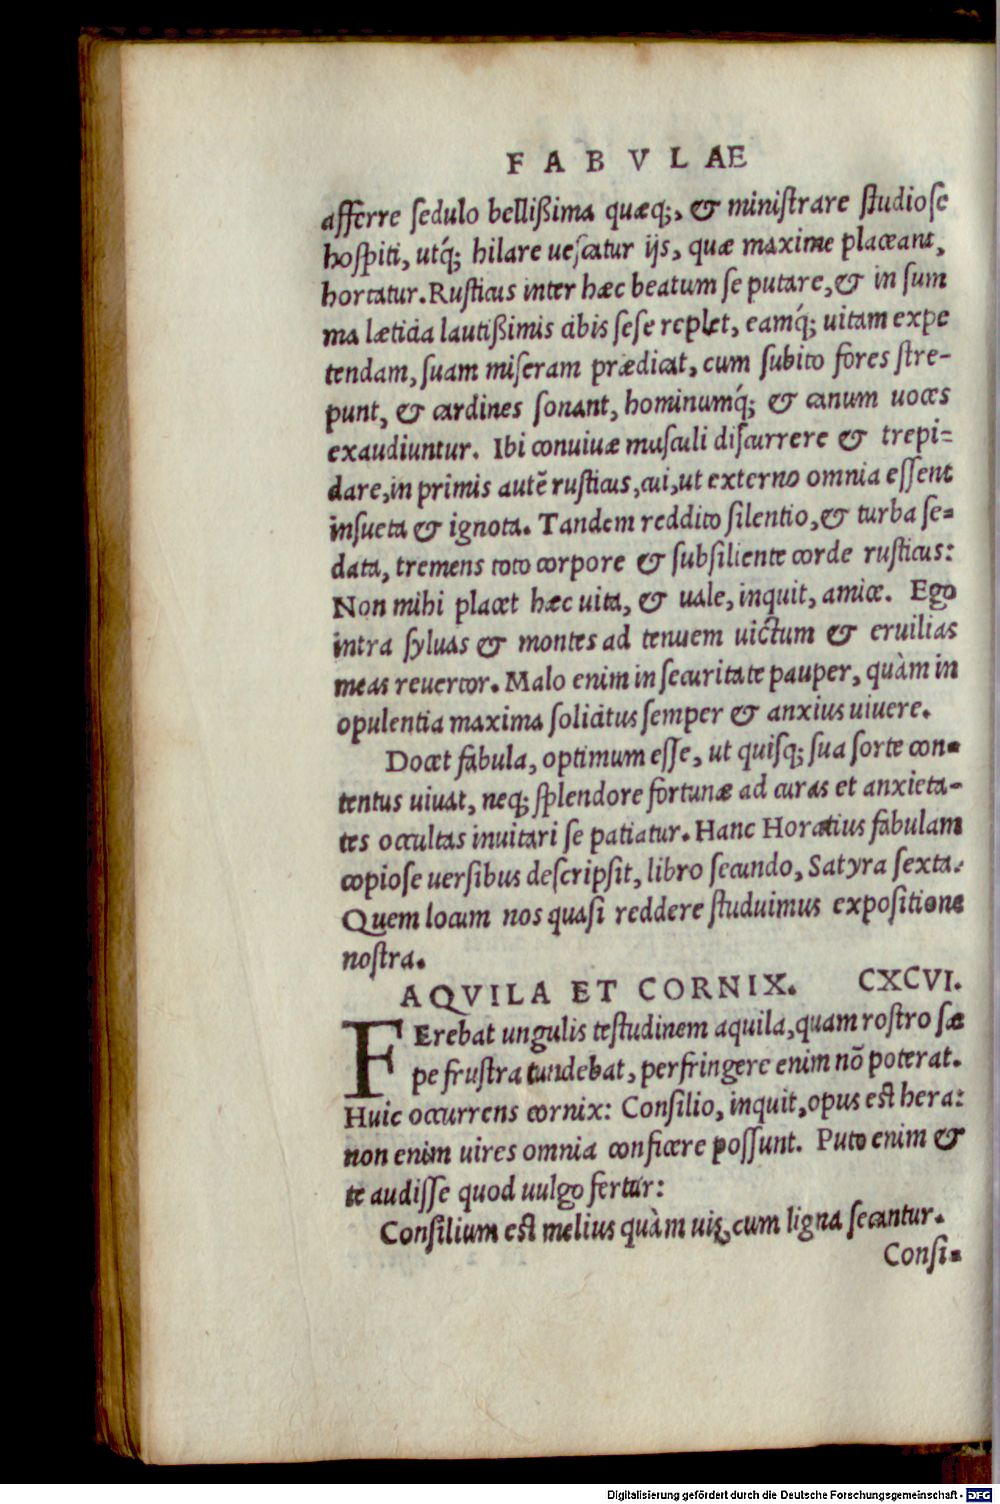 FABVLAE
afferre ſedulo belliſſima quæq;, & miniſtrare ſtudioſe
hoſpiti, utq́; hilare ueſcatur ijs, quæ maxime placeant,
hortatur. Ruſticus inter hæc beatum ſe putare, & in ſum
ma læticia lautiſſimis cibis ſeſe replet, eamq́; uitam expe
tendam, ſuam miſeram prædicat, cum ſubito fores ſtre-
punt, & cardines ſonant, hominumq́; & canum uoces
exaudiuntur. Ibi conuiuæ muſculi diſcurrere & trepi-
dare, in primis autẽ ruſticus, cui, ut externo omnia eſſent
inſueta & ignota. Tandem reddito ſilentio, & turba ſe-
data, tremens toto corpore & ſubſiliente corde ruſticus:
Non mihi placet hæc uita, & uale, inquit, amice. Ego
intra ſyluas & montes ad tenuem uictum & eruilias
meas reuertor. Malo enim in ſecuritate pauper, quàm in
opulentia maxima ſolicitus ſemper & anxius uiuere.
Docet fabula, optimum eſſe, ut quiſq; ſua ſorte con-
tentus uiuat, neq; ſplendore fortunæ ad curas et anxieta-
tes occultas inuitari ſe patiatur. Hanc Horatius fabulam
copioſe uerſibus deſcripſit, libro ſecundo, Satyra ſexta.
Quem locum nos quaſi reddere ſtuduimus expoſitione
noſtra.
AQVILA ET CORNIX. CXCVI.
FErebat ungulis teſtudinem aquila, quam roſtro ſæ
pe fruſtra tundebat, perfringere enim nõ poterat.
Huic occurrens cornix: Conſilio, inquit, opus eſt hera:
non enim uires omnia conficere poſſunt. Puto enim &
te audiſſe quod uulgo fertur:
Conſilium eſt melius quàm uis, cum ligna ſecantur.
Conſi-
Digitalisierung gefördert durch die Deutsche Forschungsgemeinschaft - DFG